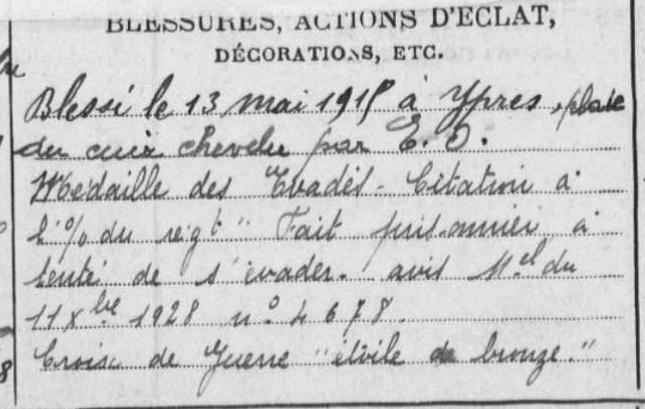 BLESSURES, ACTIONS D'ÉCLAT,
DÉCORATIONS, ETC.
Blessé le 13 mai 1915 à Ypres, plaie
du cuir chevelu par E. O.
Médaille des Evadés - Citation à
l'o/o du regt " Fait prisonnier à
tenté de s'évader. avis Mel du
11 xbre 1928 n° 4678.
Croix de Guerre "étoile de bronze."